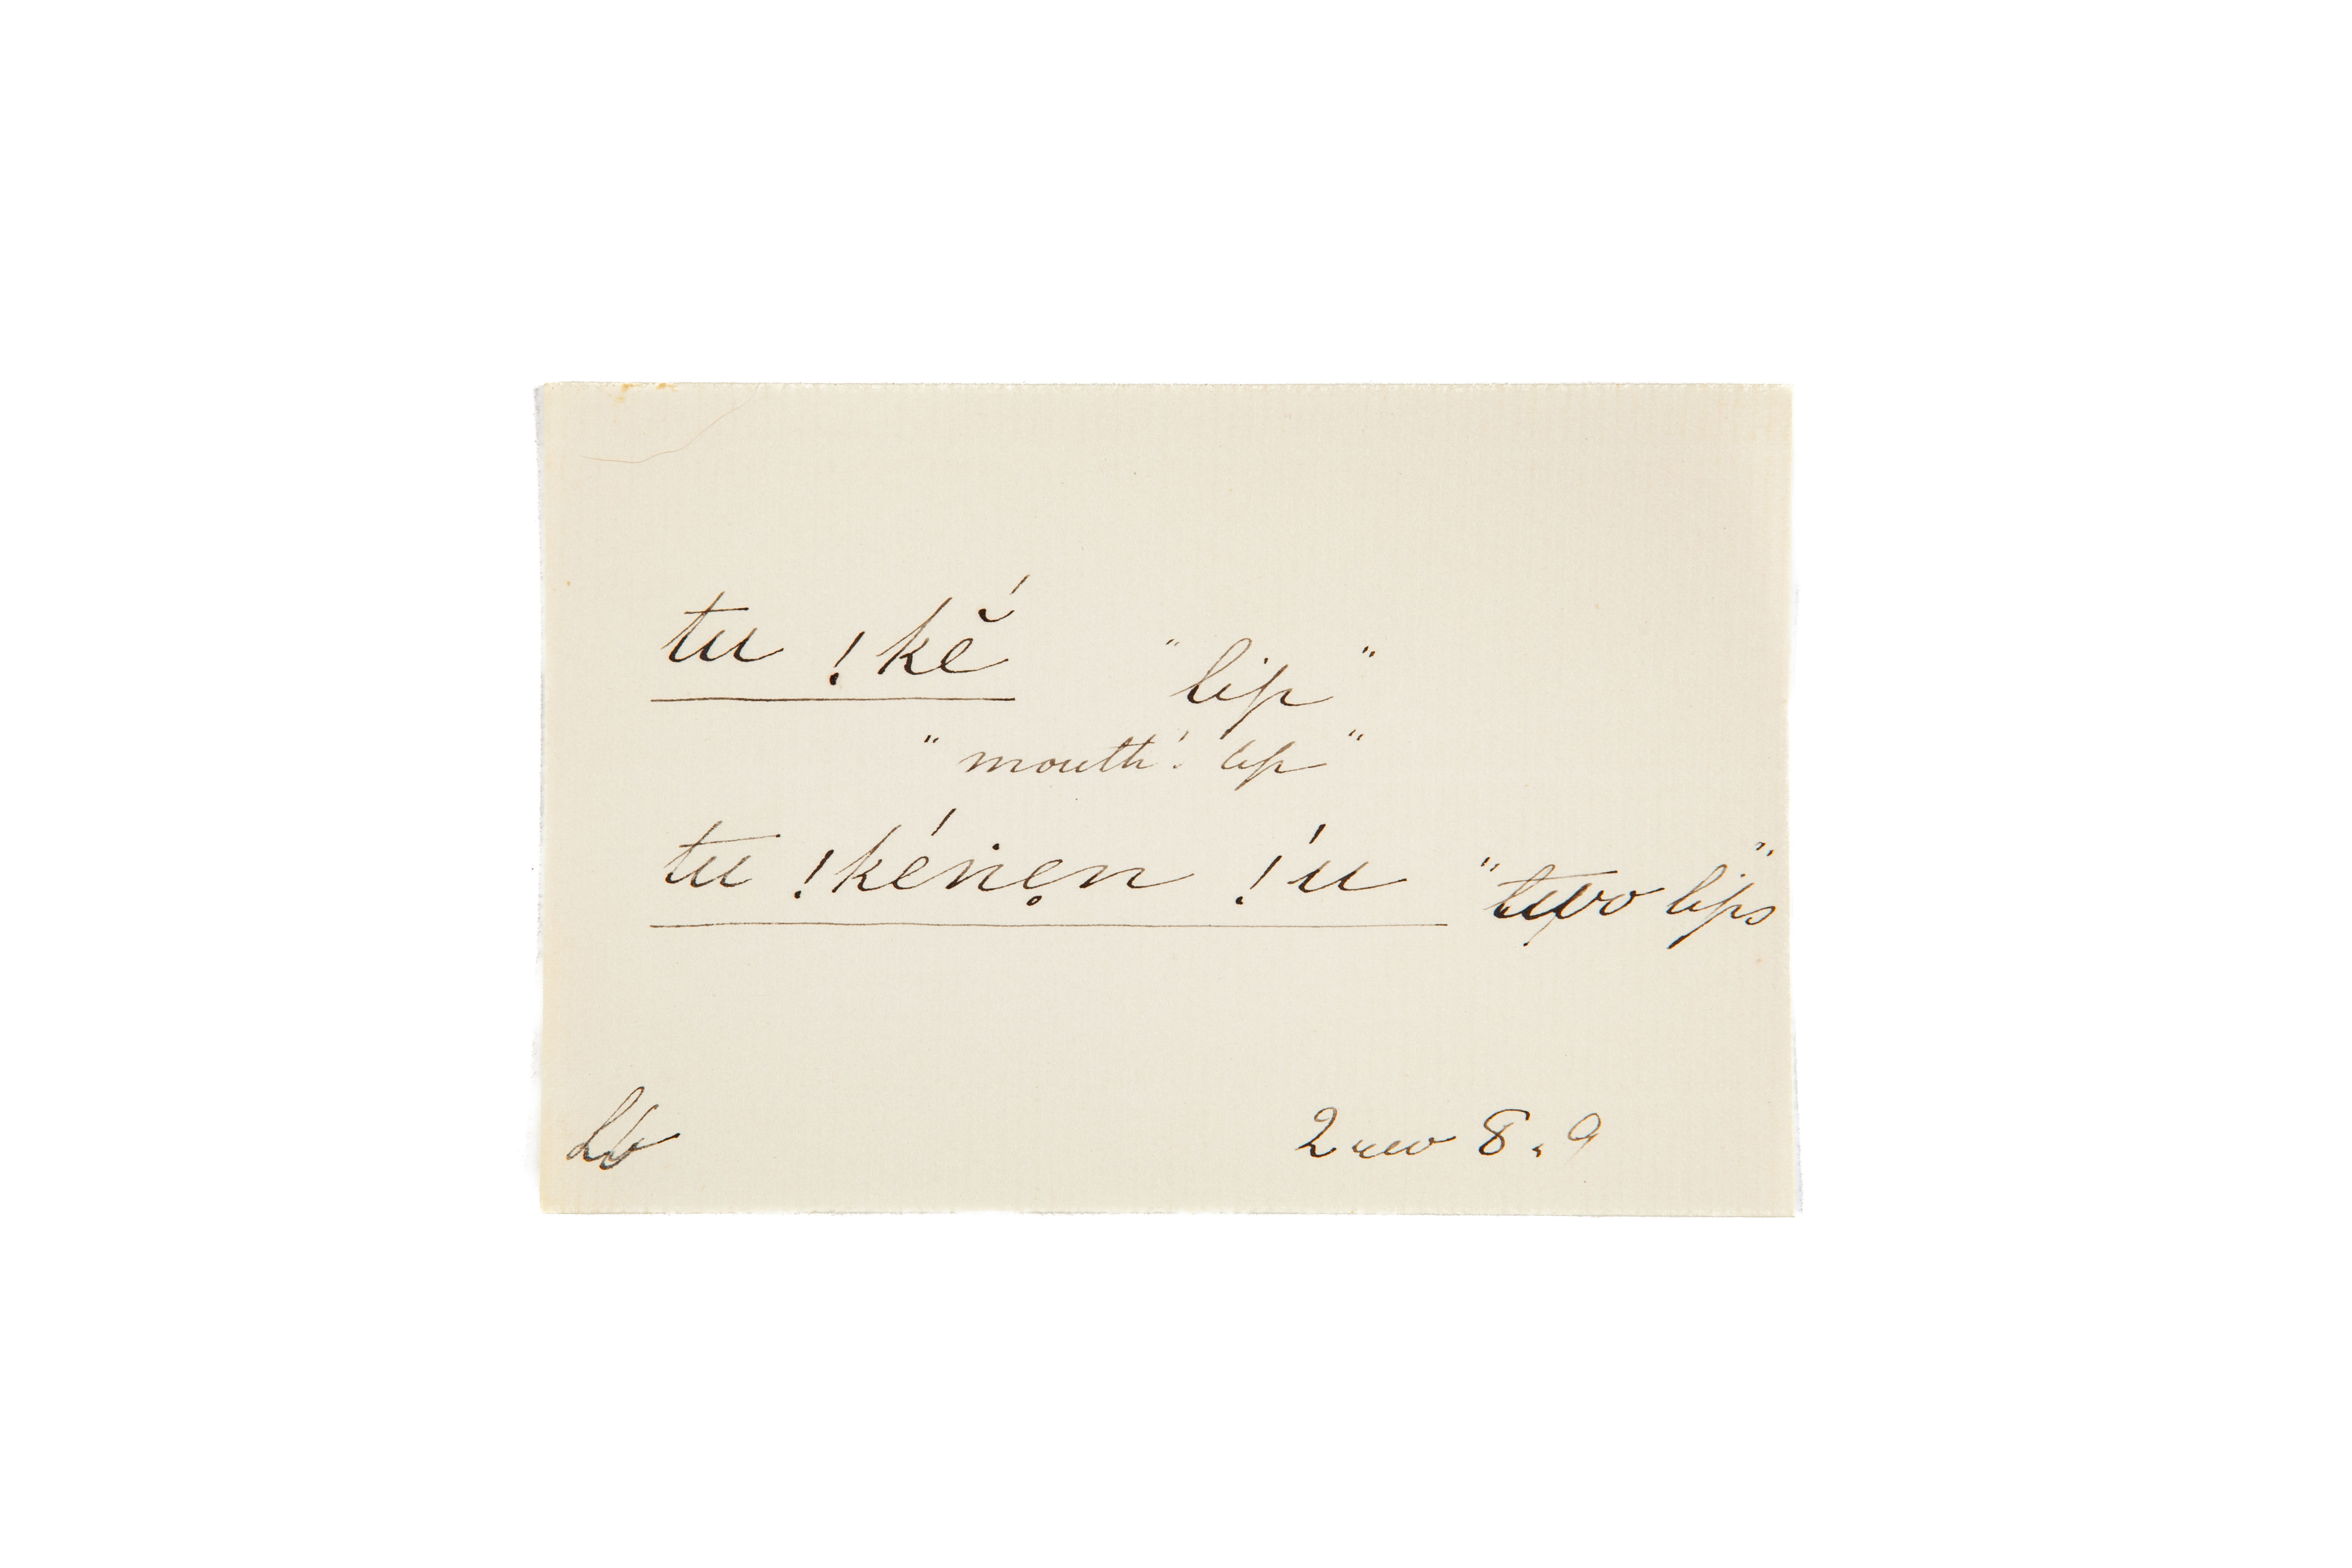 tu !kĕ́ "lip"
"mouth's lip"
tu !kéṅe̥n !'u "two lips"
2 rev 8.9